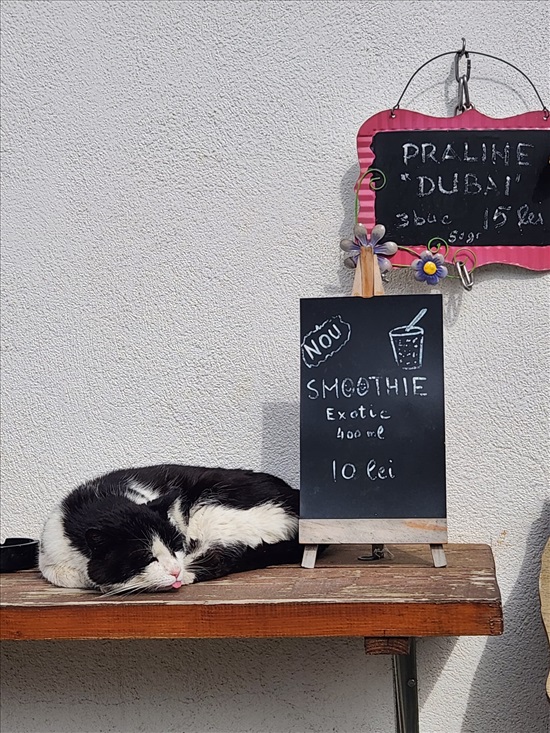 PRALINE
"DUBAI"
3 buc 15 lei
50gr
NOU
SMOOTHIE
Exotic
400 ml
10 lei